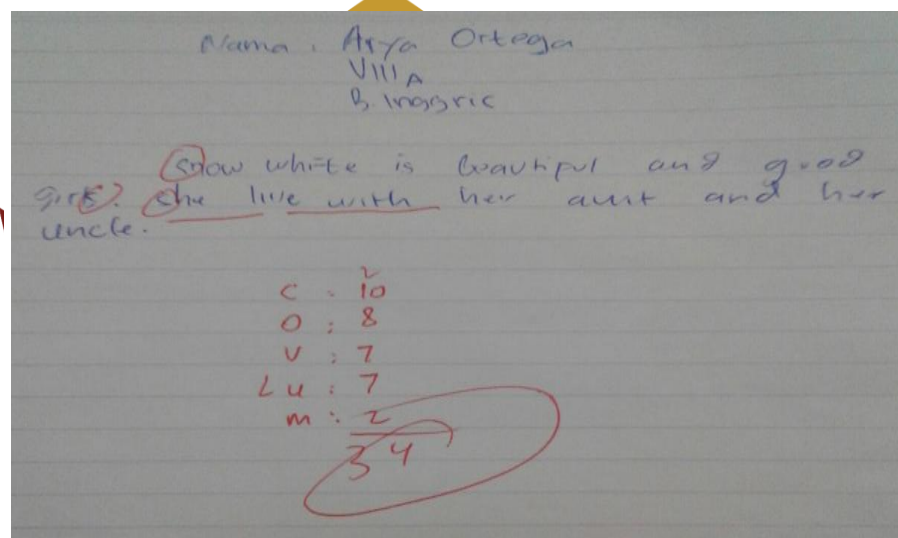 Nama : Arya Ortega
VIII A
B. Inggric
snow white is beautiful and good
girls. she live with her aunt and her
uncle.
C : 10
O : 8
V : 7
Lu : 7
m : 2
34